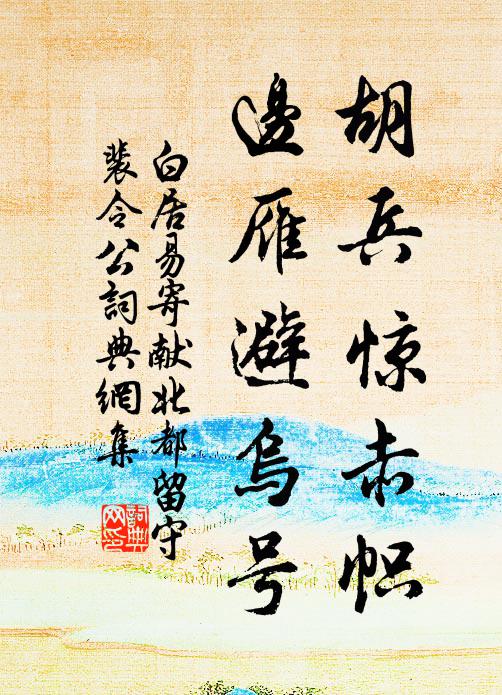 胡兵惊赤帜
邊雁避烏号
白居易寄献北都留守
裴令公詞典網集